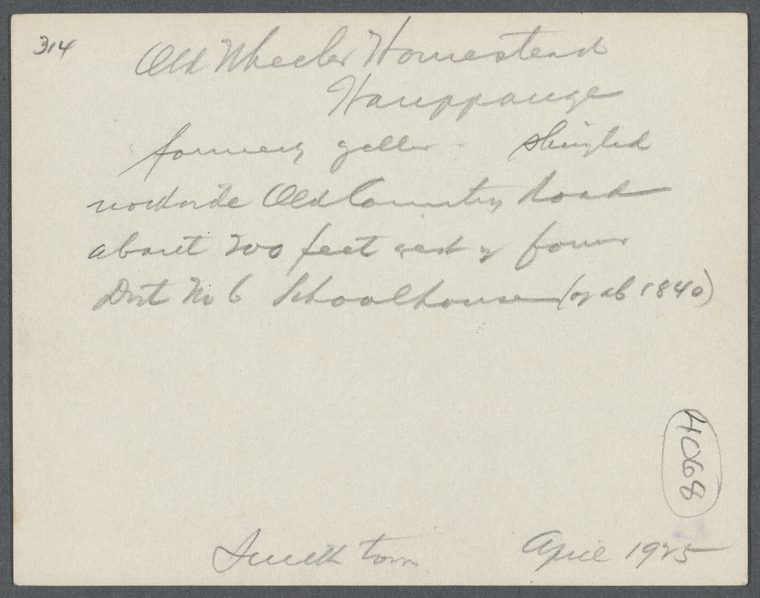 314
Old Wheeler Homestead
Hauppauge
formerly yellow shingled
northside Old Country Road
about 200 feet west of former
Dist No 6 Schoolhouse (of ab 1840)
4068
Smithtown April 1925